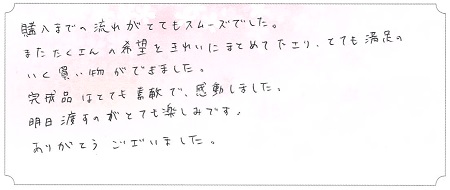 購入までの流れがとてもスムーズでした。
またたくさんの希望をきれいにまとめて下さり、とても満足の
いく買い物ができました。
完成品はとても素敵で、感動しました。
明日渡すのがとても楽しみです。
ありがとうございました。